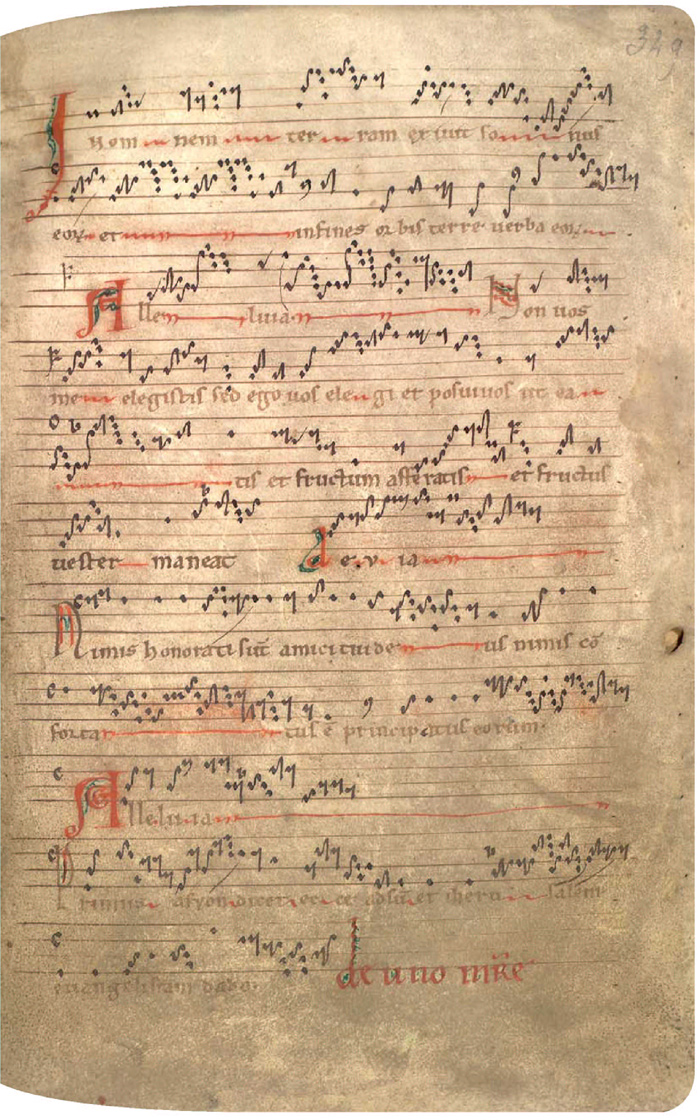 329
In om nem ter ram exivit sonus
eorum et in fines orbis terre verba eorum
Alle luia Non vos
me elegistis sed ego vos elegi et posui vos ut ea
tis et fructum afferatis et fructus
vester maneat
Nimis honorati sūt amici tui de us nimis cō
forta tus ē principatus eorum
Alleluia
Primus ad syon dicet ecce adsūt et iheru salem
evangelistam dabo
de uno mr̄e